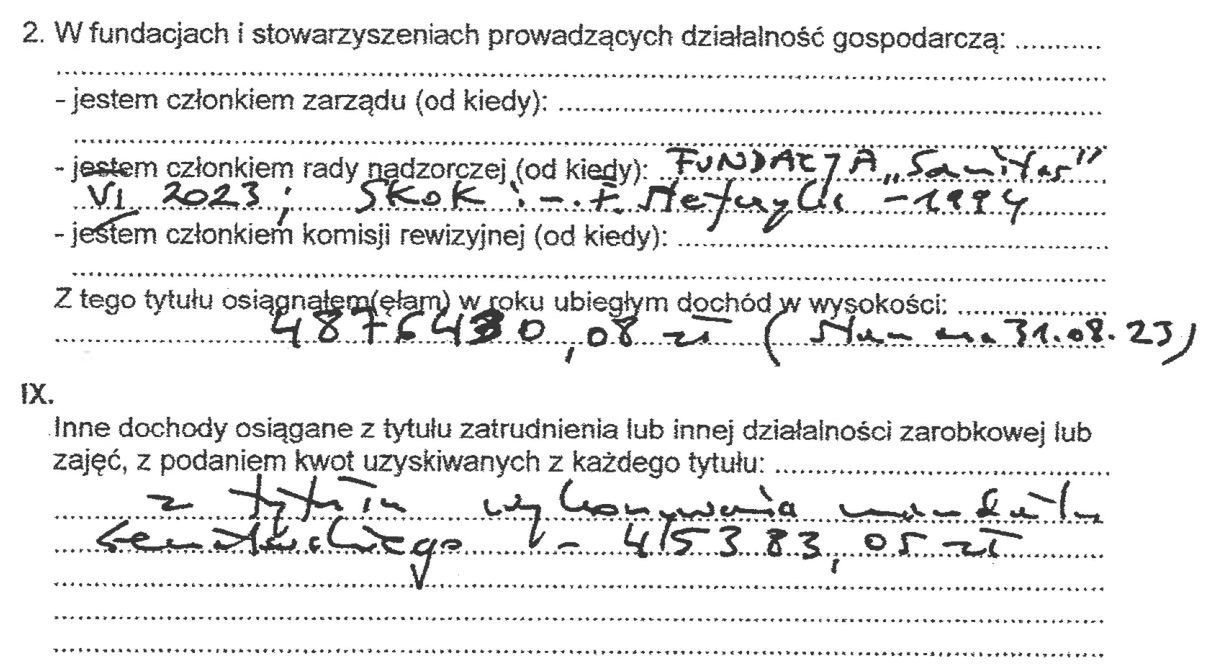 2. W fundacjach i stowarzyszeniach prowadzących działalność gospodarczą: ...........
- jestem członkiem zarządu (od kiedy):
- jestem członkiem rady nadzorczej (od kiedy): FUNDACJA „Sanitas”
VI 2023; SKOK : - F.
- 1994
- jestem członkiem komisji rewizyjnej (od kiedy):
Z tego tytułu osiągnąłem(ęłam) w roku ubiegłym dochód w wysokości:
,08 zł ( stan na 31.08.23)
IX.
Inne dochody osiągane z tytułu zatrudnienia lub innej działalności zarobkowej lub
zajęć, z podaniem kwot uzyskiwanych z każdego tytułu:
z tytułu wykonywania mandatu
senatorskiego - 415383,05 zł